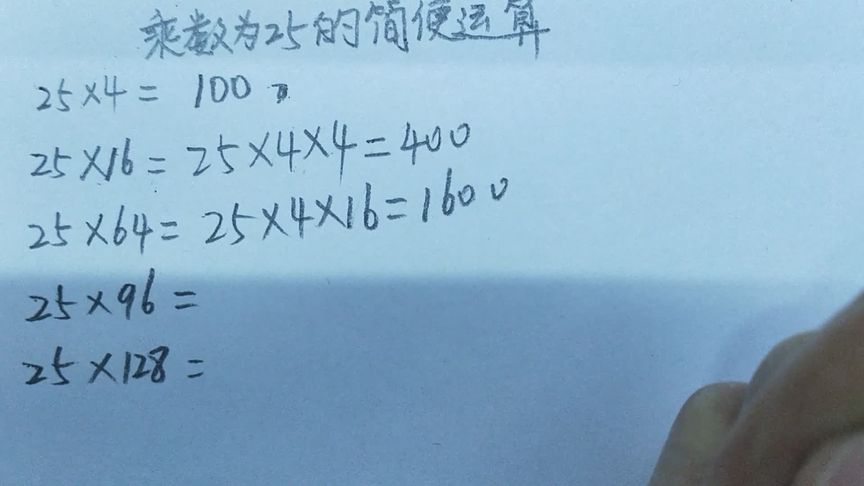 乘数为25的简便运算
25×4= 100
25×16=25×4×4=400
25×64=25×4×16=1600
25×96=
25×128=